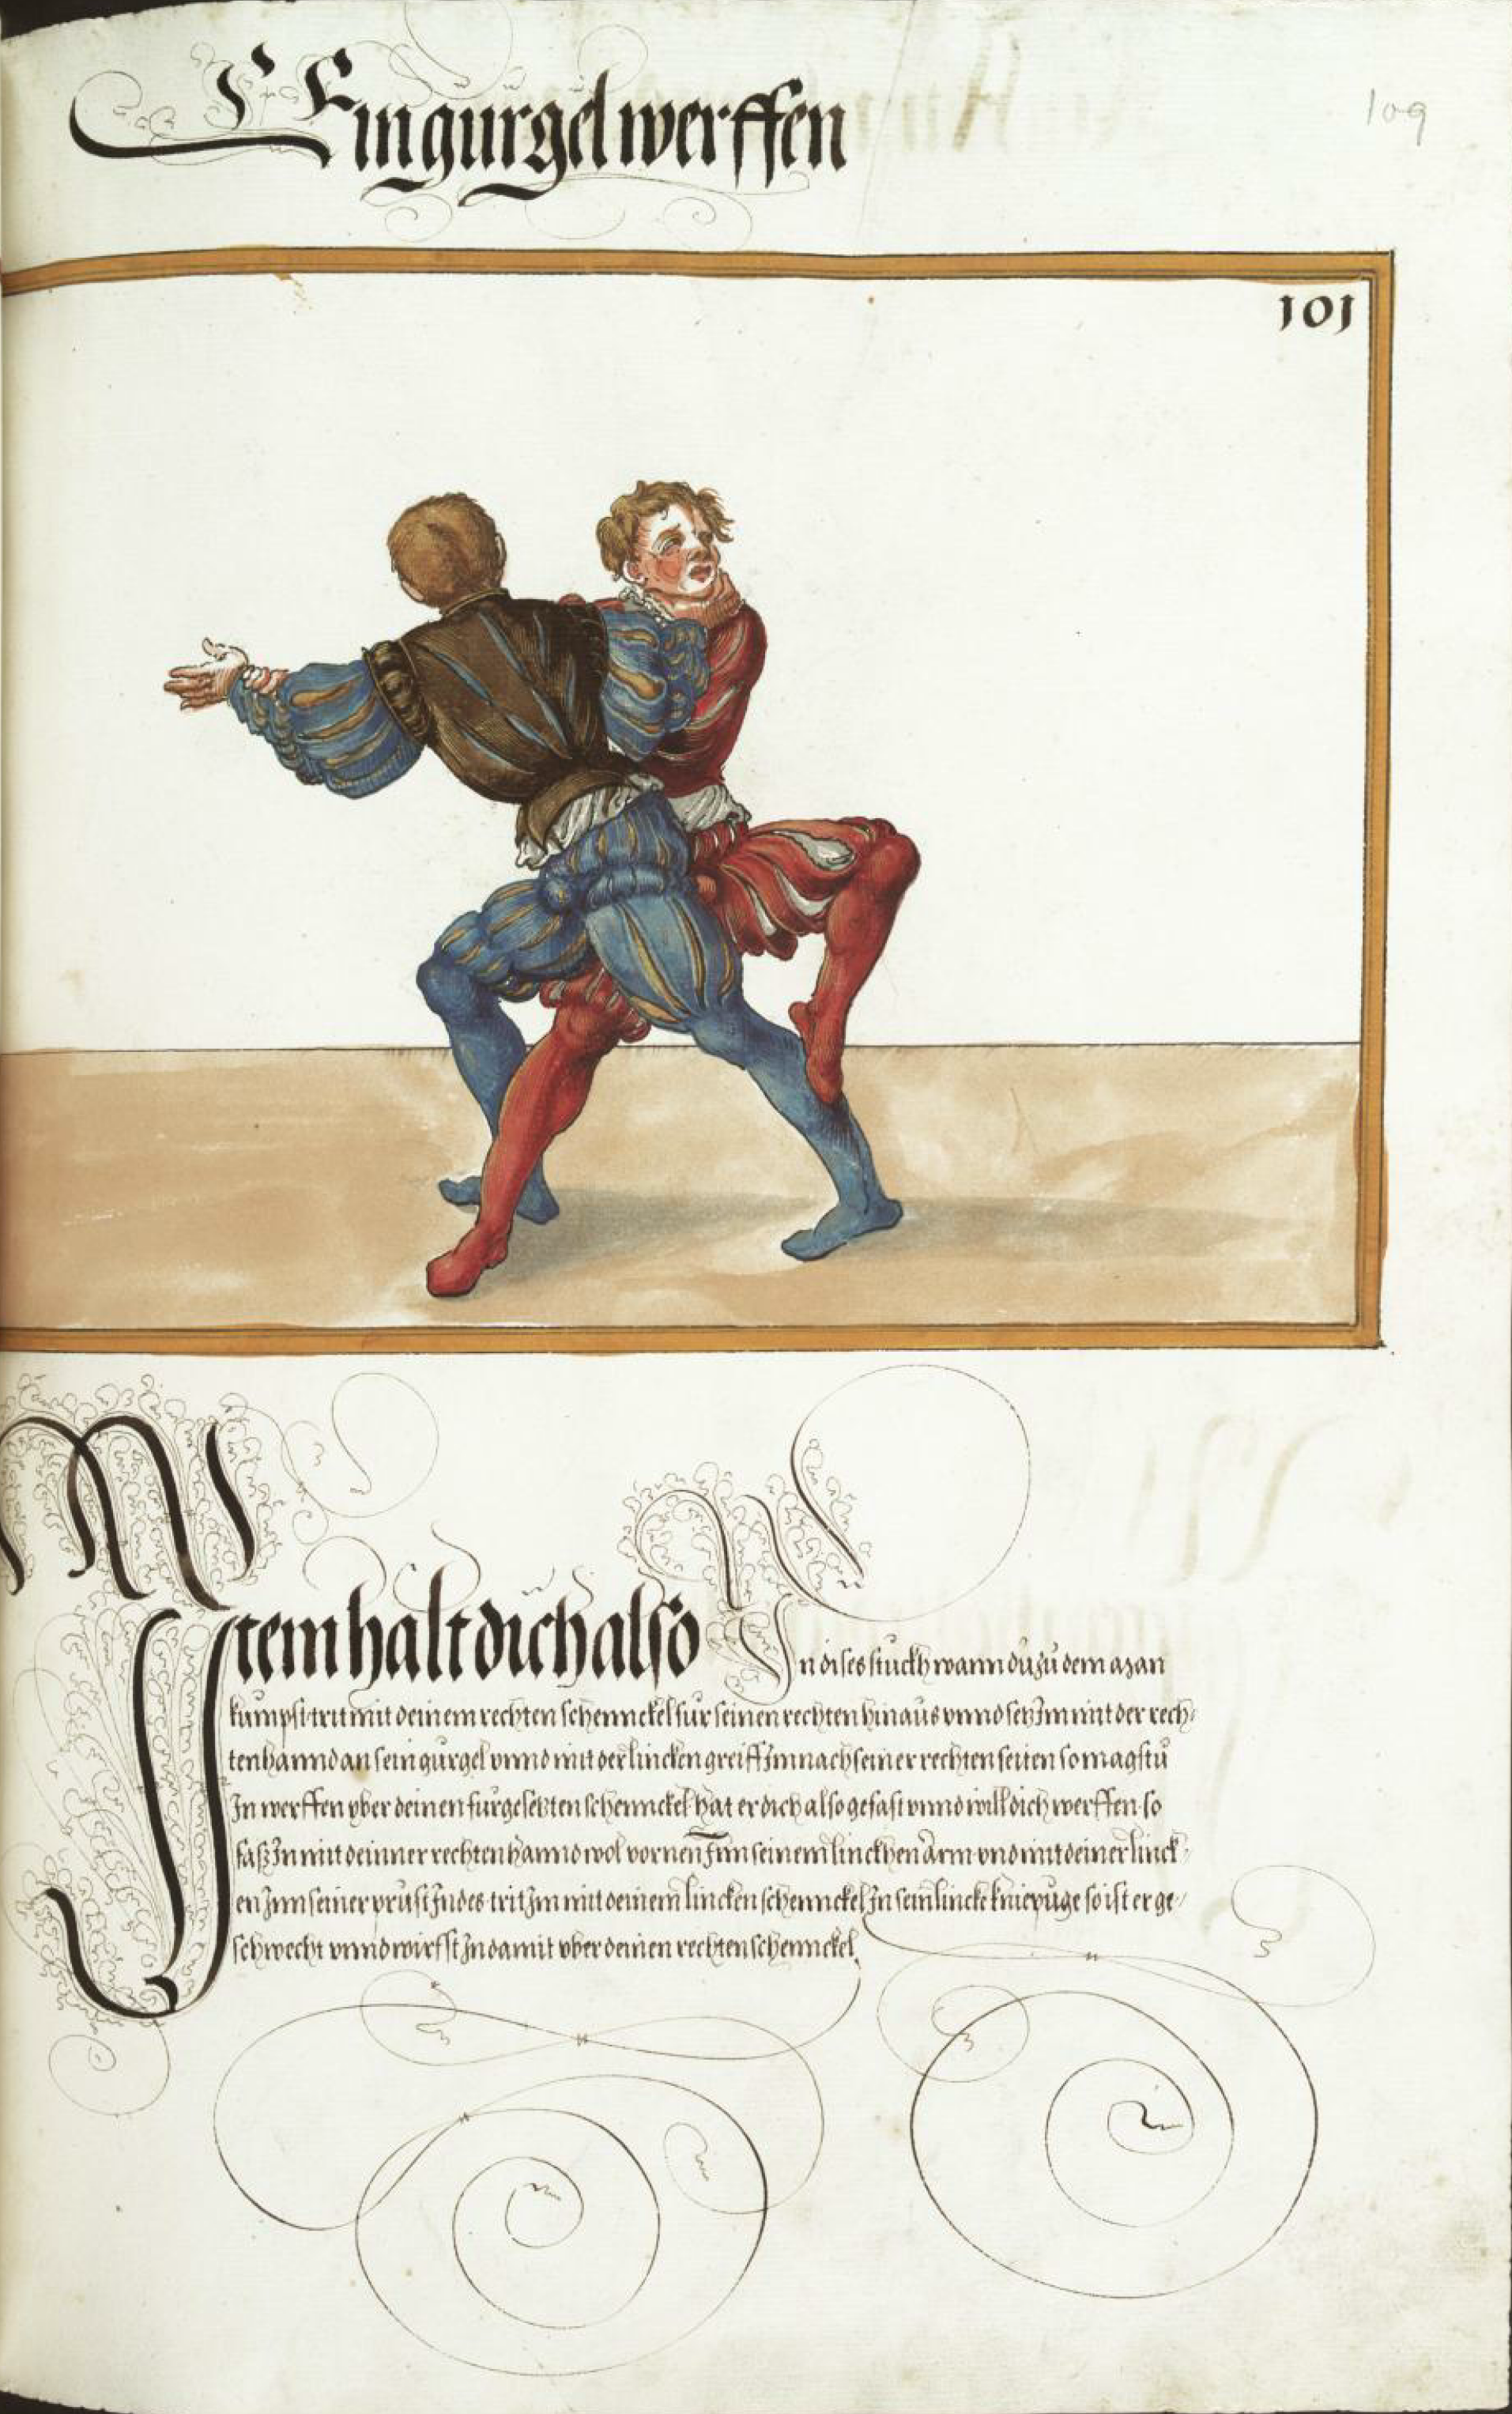 Ein gurgel werffen
109
101
Item halt dich also In dises stuckh wann du zu dem man
kumpst trit mit deinem rechten schennckel für seinen rechten hinaus vnnd setz Im mit der rech-
ten hannd an sein gurgel vnnd mit der lincken greiff Im nach seiner rechten seiten so magstu
In werffen vber deinen fürgesetzten schennckel hat er dich also gefast vnnd will dich werffen so
fasß In mit deinner rechten hannd wol vornen Inn seinem linckhen Arm vnd mit deiner linck-
en Inn seiner prust Indes trit Im mit deinem lincken schennckel In sein lincke kniepuge so ist er ge-
schwecht vnnd wirfst In damit vber deinen rechten schennckel.